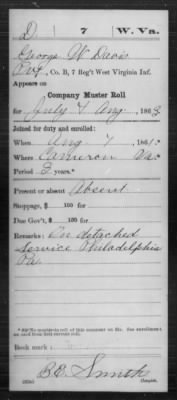 D 7 W. Va.
George W Davis
Pvt, Co. B, 7 Reg't West Virginia Inf.
Appears on
Company Muster Roll
for July & Aug, 1863
Joined for duty and enrolled:
When Aug 7, 1861
Where Cameron Va
Period 3 years.*
Present or absent Absent
Stoppage, $ 100 for
Due Gov't, $ 100 for
Remarks: On detached
service Philadelphia
Pa.
Book mark:
B.E. Smith
Copyist.